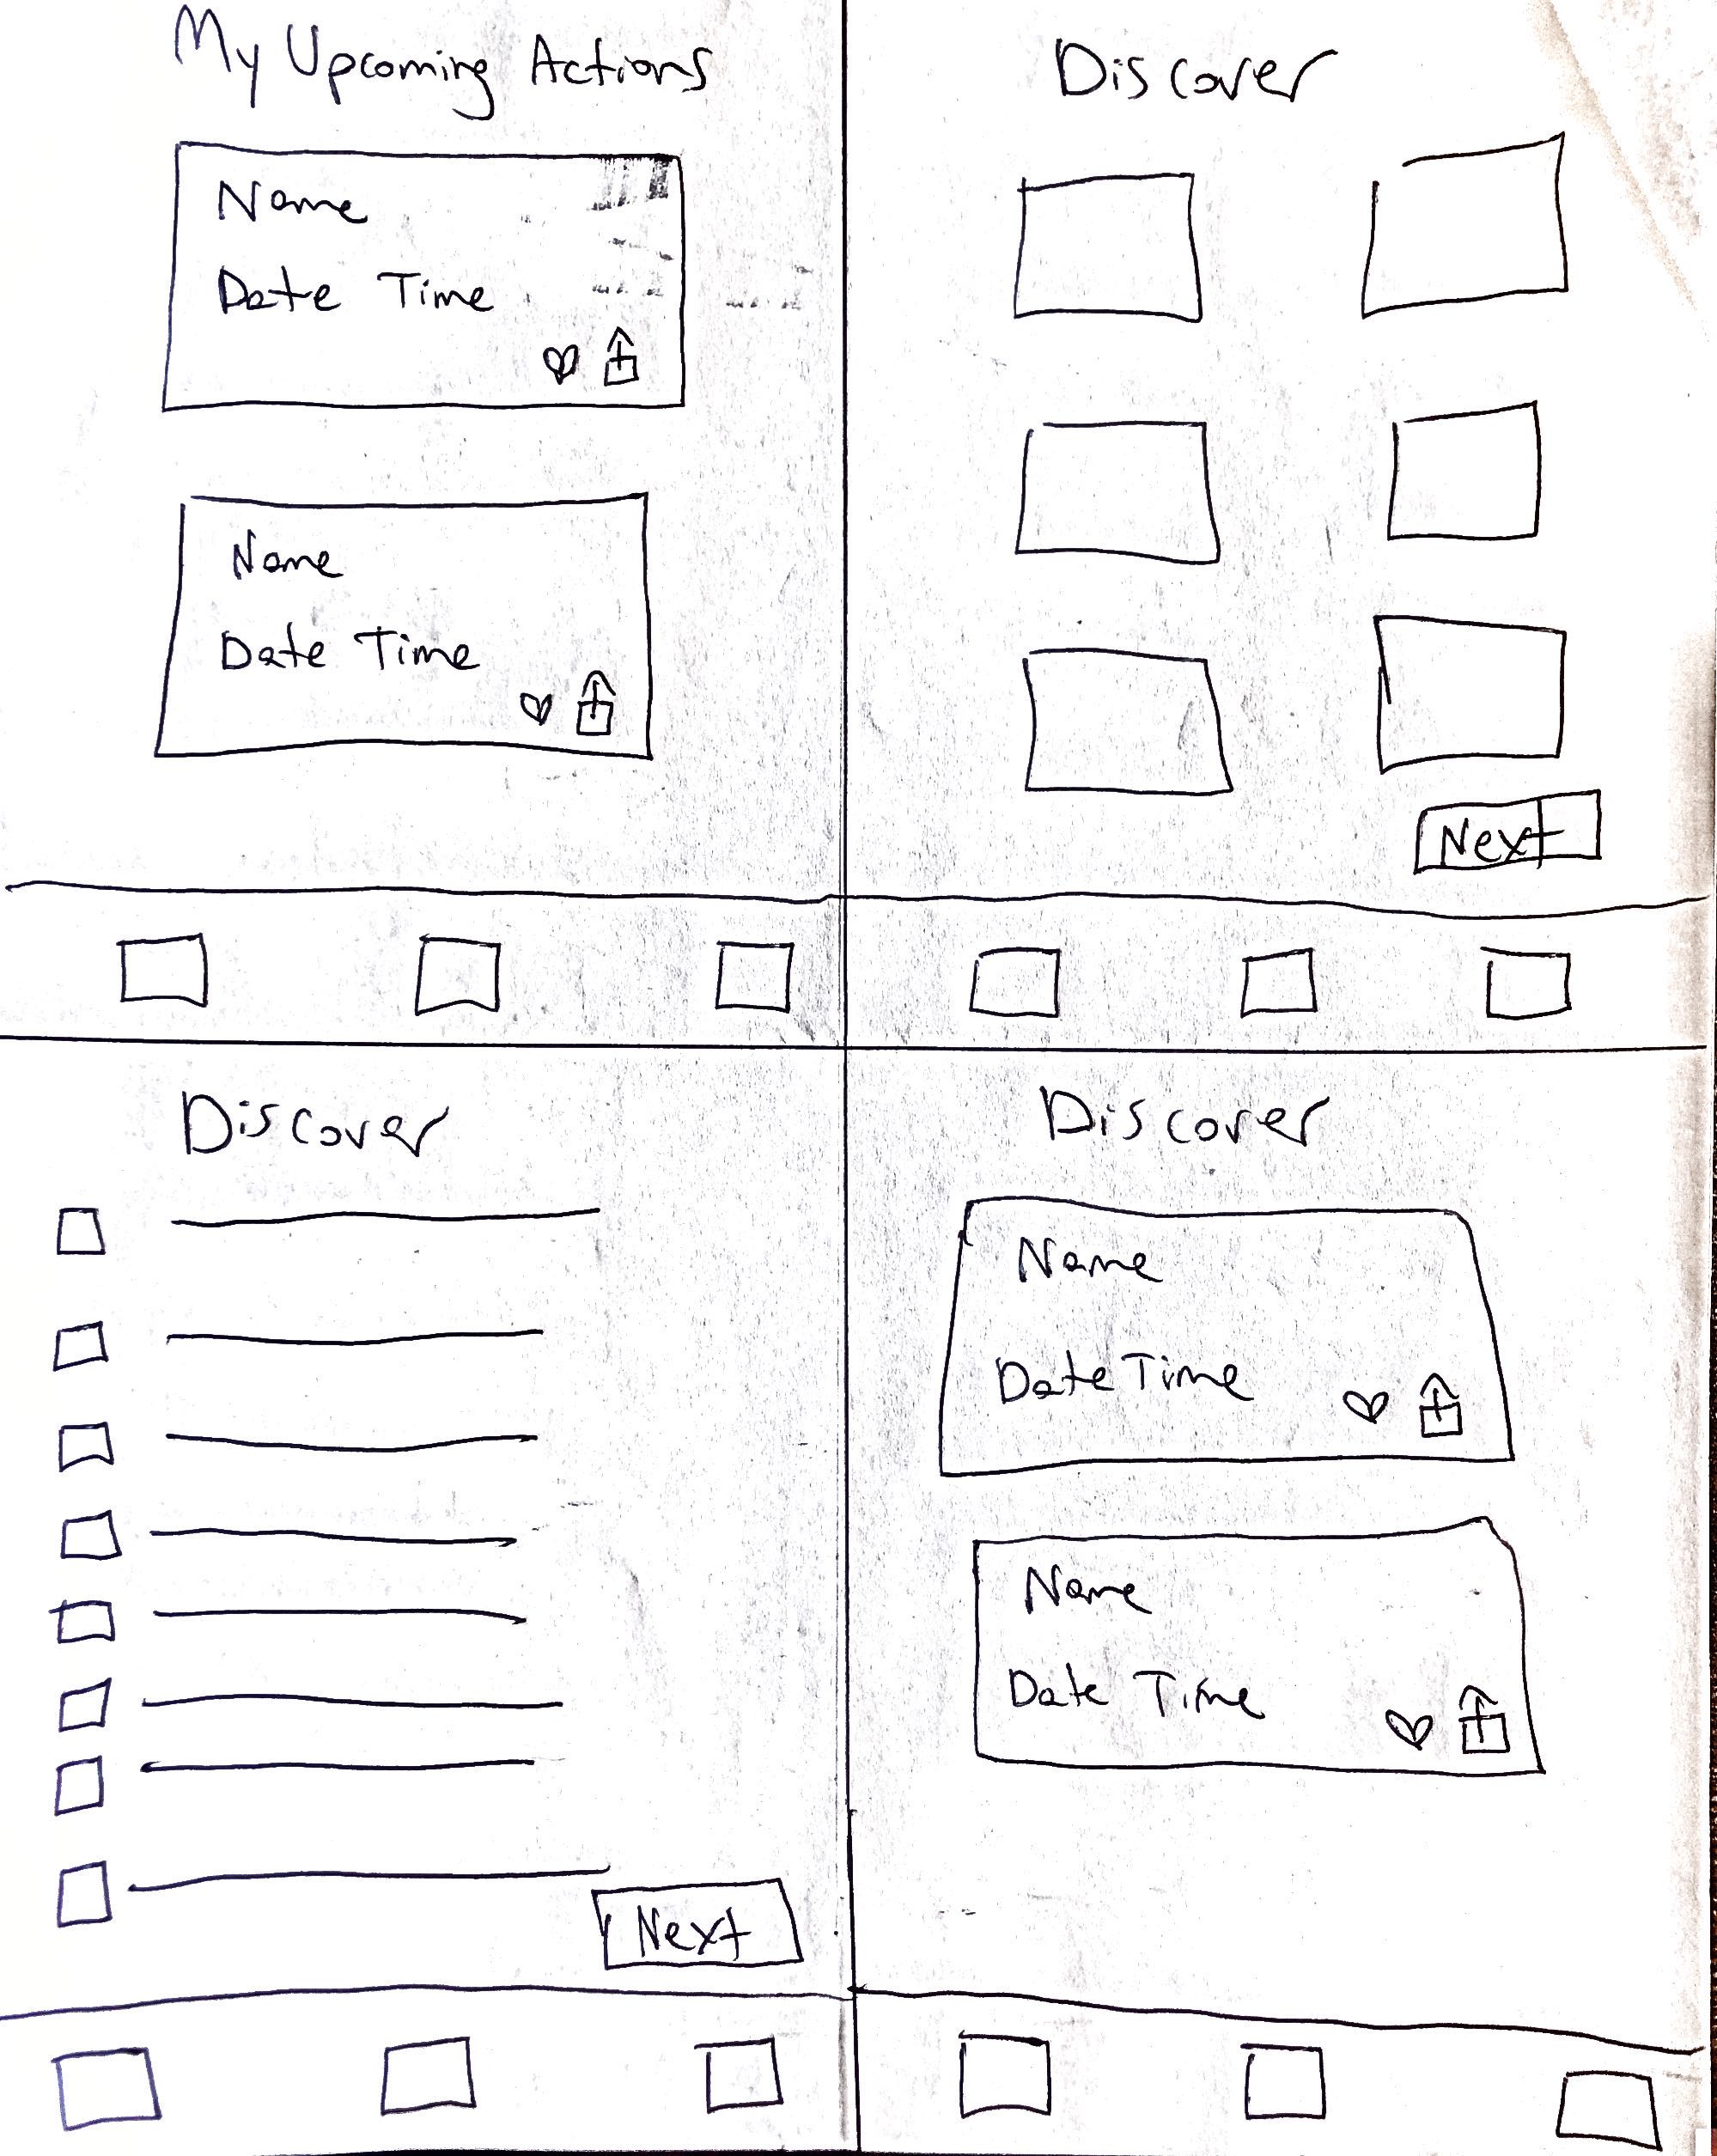 My Upcoming Actions
Name
Date Time
Name
Date Time
Discover
Next
Discover
Next
Discover
Name
Date Time
Name
Date Time